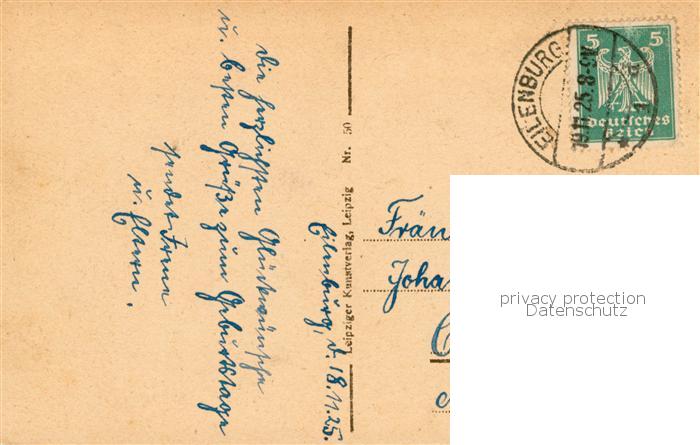 Eilenburg, d. 18.11.25.
Die herzlichsten Glückwünsche
u. besten Grüße zum Geburtstage
sendet Irene
u. Eltern.
Leipziger Kunstverlag, Leipzig Nr. 50
EILENBURG
19.11.25. 8-9V
1
5 5
Deutsches
Reich
Fräu
Joha
privacy protection
Datenschutz